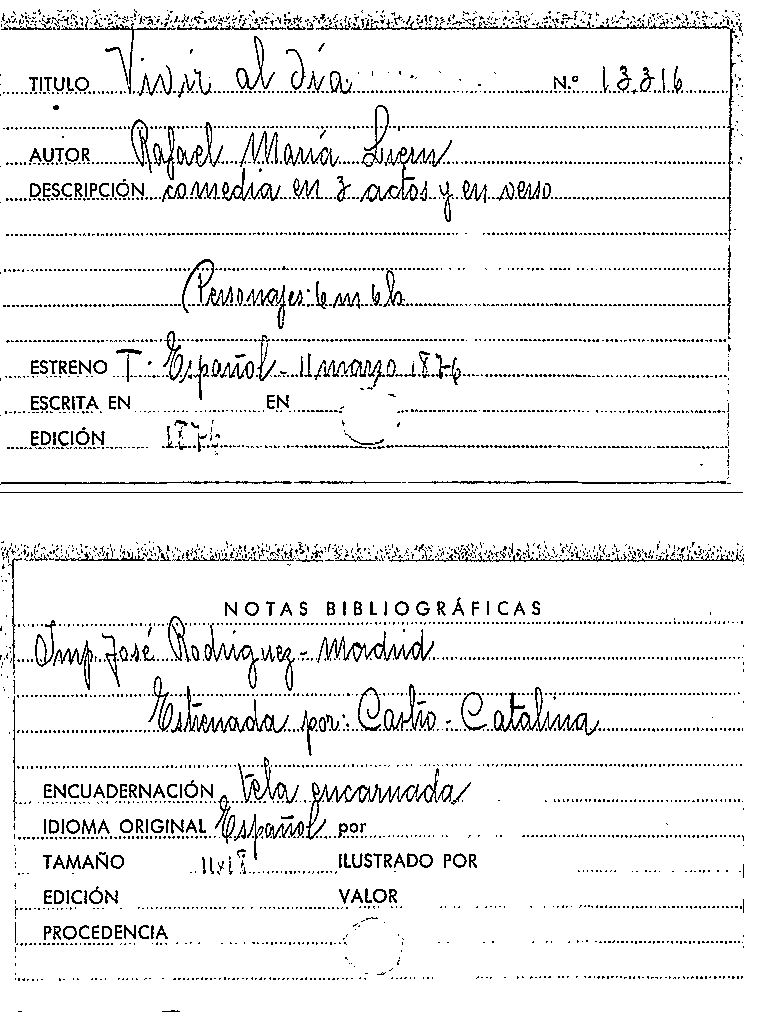 TITULO Vivir al día N.º 13.316
AUTOR Rafael María Liern
DESCRIPCIÓN comedia en 3 actos y en verso
(Personajes: 6 m 6 h
ESTRENO T. Español - 11 marzo 1876
ESCRITA EN EN
EDICIÓN 1876
NOTAS BIBLIOGRÁFICAS
Imp. José Rodríguez - Madrid
Estrenada por: Castro - Catalina
ENCUADERNACIÓN tela encarnada
IDIOMA ORIGINAL Español por
TAMAÑO 11x18 ILUSTRADO POR
EDICIÓN VALOR
PROCEDENCIA